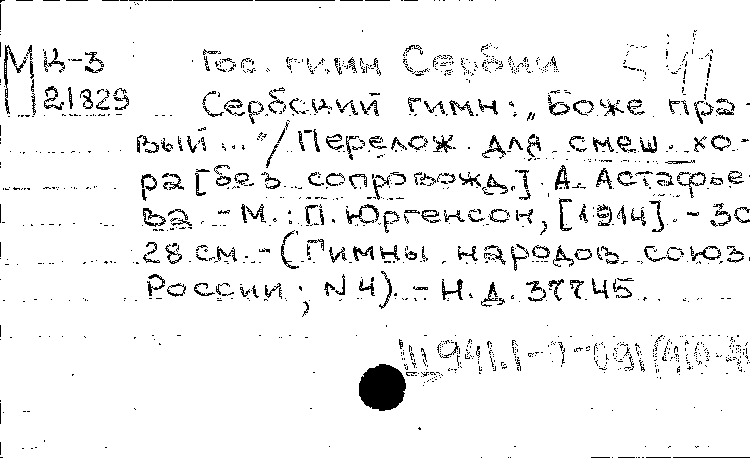 М К-3 Гос. гимн Сербии 541
21829 Сербский гимн: „Боже пра-
вый..."/ Перелож. для смеш. хо-
ра [без сопровожд.] А. Астафье-
ва. - М.: П. Юргенсон, [1914]. - 3с
28 см. - (Гимны народов союз.
России; N 4). - Н.д. 37745
III 941.1-